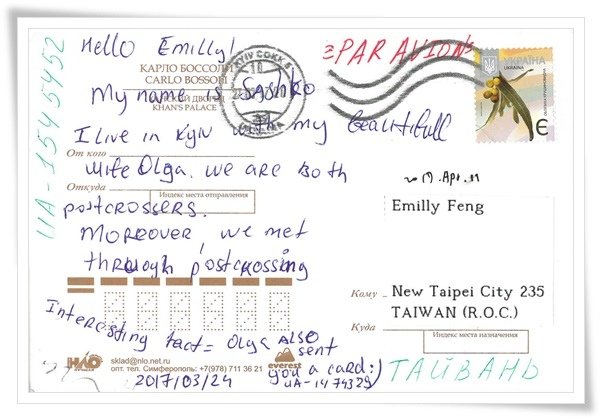 Hello Emilly!
≡PAR AVION≡
КАРЛО БОССОЛИ
CARLO BOSSOLI
KHAN'S PALACE
УКРАЇНА
UKRAINA
Є
UA-1545452
My name is Sashko
I live in Kyiv with my beautifull
wife Olga. We are both
postcrossers.
Moreover, we met
through postcrossing
Interesting fact = Olga also
sent
you a card:)
UA-1474329
2017/03/24
От кого
Откуда
Индекс места отправления
2017.Apr.11
Emilly Feng
Кому
New Taipei City 235
TAIWAN (R.O.C.)
Куда
Индекс места назначения
ТАЙВАНЬ
НЛО
sklad@nlo.net.ru
опт. тел. Симферополь: +7(978) 711 36 21
everest